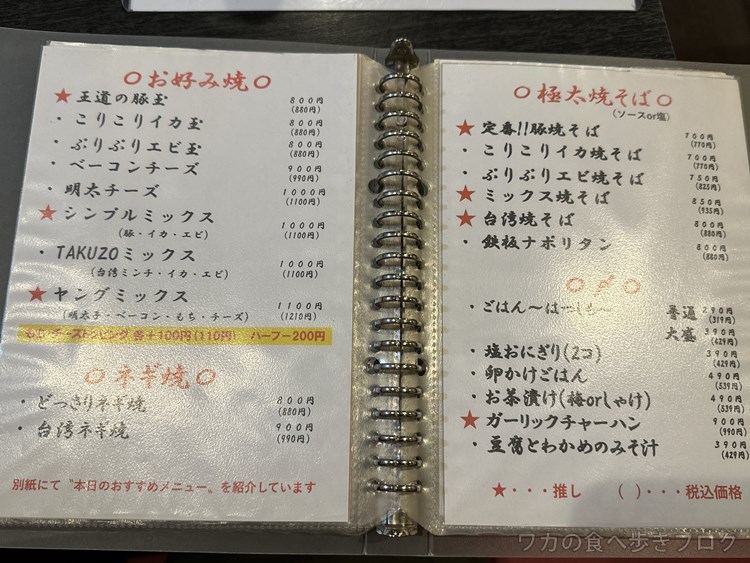 ○お好み焼○
★王道の豚玉 800円
(880円)
・こりこりイカ玉 800円
(880円)
・ぷりぷりエビ玉 800円
(880円)
・ベーコンチーズ 900円
(990円)
・明太チーズ 1000円
(1100円)
★シンプルミックス 1000円
(豚・イカ・エビ) (1100円)
・TAKUZOミックス 1000円
(台湾ミンチ・イカ・エビ) (1100円)
★ヤングミックス 1100円
(明太子・ベーコン・もち・チーズ) (1210円)
チーズトッピング 各+100円(110円) ハーフ-200円
○ネギ焼○
・どっさりネギ焼 800円
(880円)
・台湾ネギ焼 900円
(990円)
別紙にて〝本日のおすすめメニュー〟を紹介しています
○極太焼そば○
(ソースor塩)
★定番!!豚焼そば 700円
(770円)
・こりこりイカ焼そば 700円
(770円)
・ぷりぷりエビ焼そば 750円
(825円)
★ミックス焼そば 850円
(935円)
★台湾焼そば 800円
(880円)
・鉄板ナポリタン 800円
(880円)
○〆○
・ごはん〜は 普通 290円
(319円)
大盛 390円
(429円)
・塩おにぎり(2コ) 390円
(429円)
・卵かけごはん 490円
(539円)
・お茶漬け(梅orしゃけ) 490円
(539円)
★ガーリックチャーハン 900円
(990円)
・豆腐とわかめのみそ汁 390円
(429円)
★・・・推し ( )・・・税込価格
ワカの食べ歩きブログ